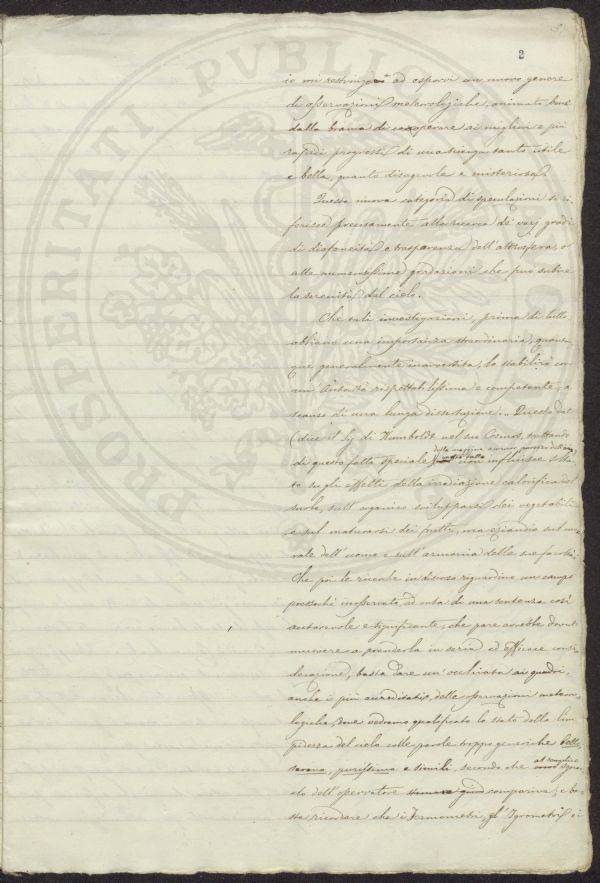 2
io mi restringerò ad esporvi un nuovo genere
di osservazioni meteorologiche, animato bensì
dalla brama di cooperare ai migliori e più
rapidi progressi di una scienza tanto utile
e bella, quanto disagevole e misteriosa.
Questa nuova categoria di speculazioni si ri-
ferisce precisamente alla ricerca de' varj gradi
di diafaneità e trasparenza dell'atmosfera, o
alle numerosissime gradazioni che può subire
la serenità del cielo.
Che tali investigazioni, prima di tutto
abbiano una importanza straordinaria, quan-
que generalmente inavvertita, lo stabilirà con
un' Autorità rispettabilissima e competente, a
scanso di una lunga dissertazione: „ Questo dal
(dice il Sig. di Humboldt nel suo Cosmos, trattando
della maggiore o minor purezza dell'aria
di questo fatto speciale) non influisce solta-
to su gli effetti della irradiazione calorifica del
suolo, sull'organico svilupparsi dei vegetabili
e sul maturarsi dei frutti, ma eziandio sul mo-
rale dell'uomo e sull'armonia delle sue facoltà.
Che poi le ricerche in discorso riguardino un campo
pressochè inosservato, ad onta di una sentenza così
autorevole e significante, che pare avrebbe dovuto
muovere a prenderla in seria ed efficace consi-
derazione, basta dare un'occhiata ai quadri,
anche i più accreditati, delle osservazioni meteoro-
logiche, dove vedremo qualificato lo stato della lim-
pidezza del cielo colle parole troppo generiche bello,
sereno, purissimo e simili, secondo che al semplice
do dell'osservatore comparisca; e ba-
sta ricordare che i Termometri, gl'Igrometri ci